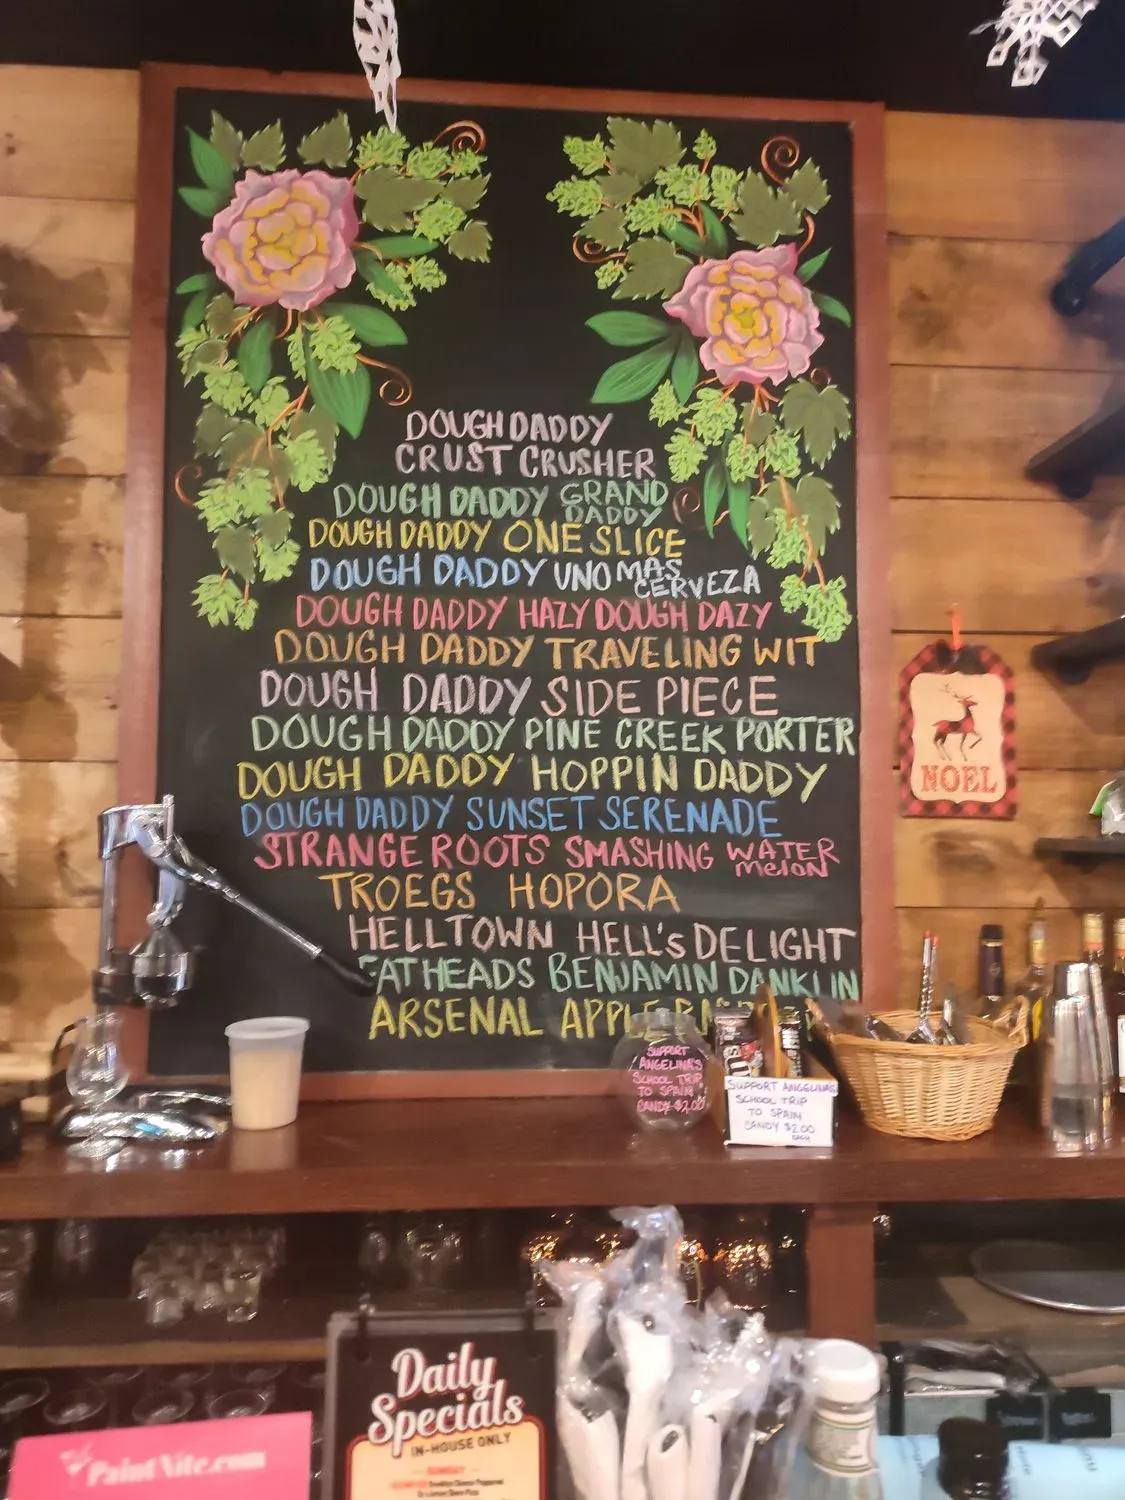 DOUGH DADDY
CRUST CRUSHER
DOUGH DADDY GRAND
DADDY
DOUGH DADDY ONE SLICE
DOUGH DADDY UNO MAS
CERVEZA
DOUGH DADDY HAZY DOUGH DAZY
DOUGH DADDY TRAVELING WIT
DOUGH DADDY SIDE PIECE
DOUGH DADDY PINE CREEK PORTER
DOUGH DADDY HOPPIN DADDY
DOUGH DADDY SUNSET SERENADE
STRANGE ROOTS SMASHING WATER
MELON
TROEGS HOPORA
HELLTOWN HELL'S DELIGHT
FATHEADS BENJAMIN DANKLIN
ARSENAL APPLE
NOEL
SUPPORT
ANGELINA'S
SCHOOL TRIP
TO SPAIN
CANDY $2.00
SUPPORT ANGELINAS
SCHOOL TRIP
TO SPAIN
CANDY $2.00
EACH
Daily
Specials
IN-HOUSE ONLY
Paint Nite.com